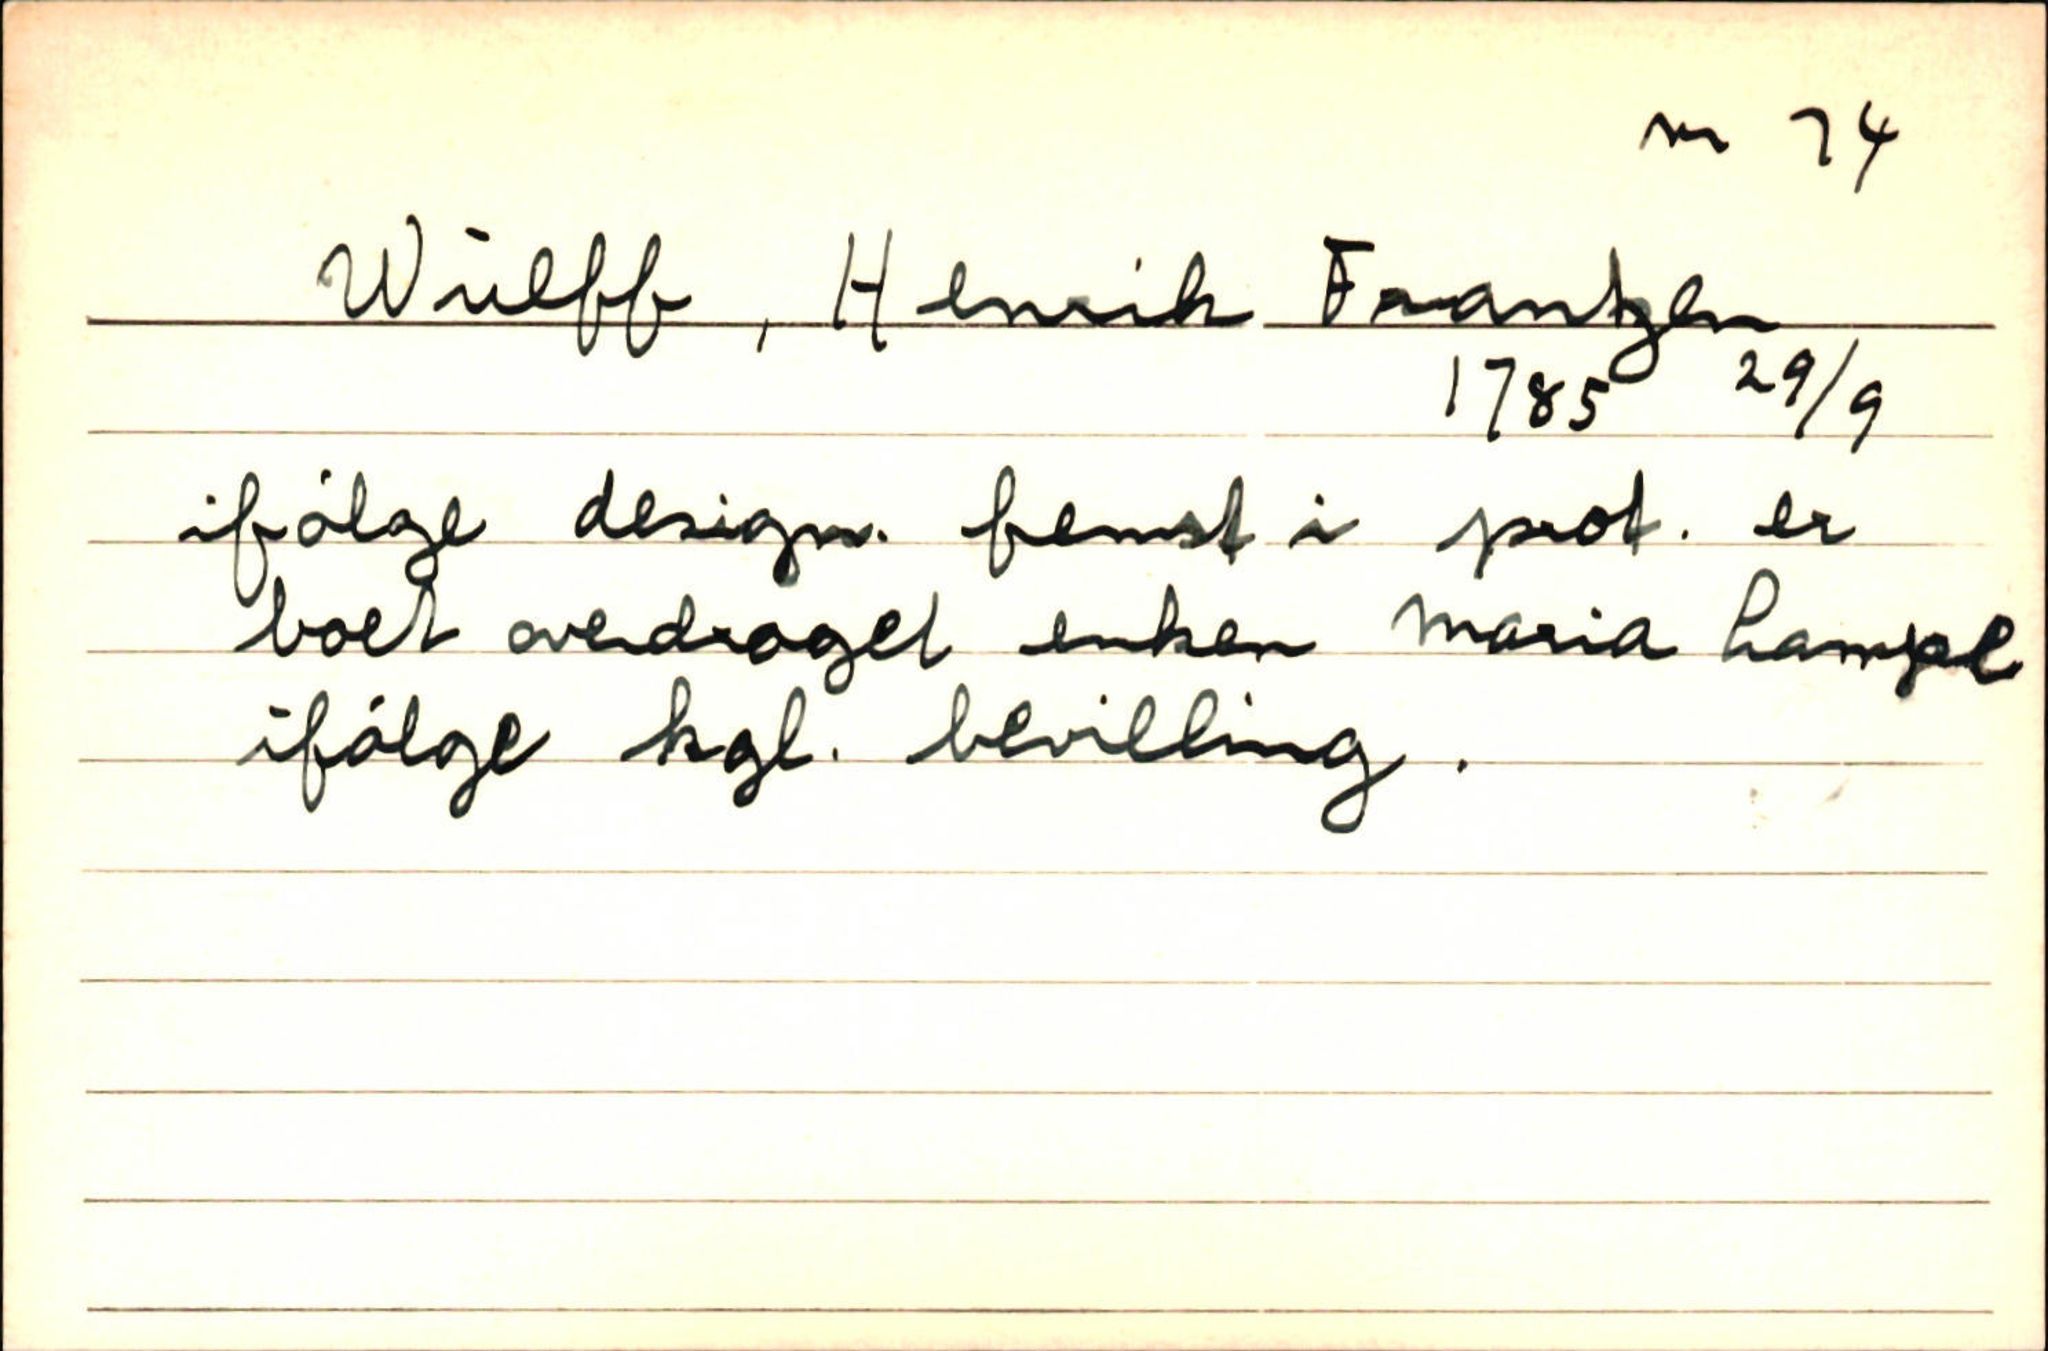 nr 74
Wülff, Henrik Frantzen
1785 29/9
ifólge design. femst i prot. er
boet overdraget enken Maria Lampe
ifólge kgl. bevilling.